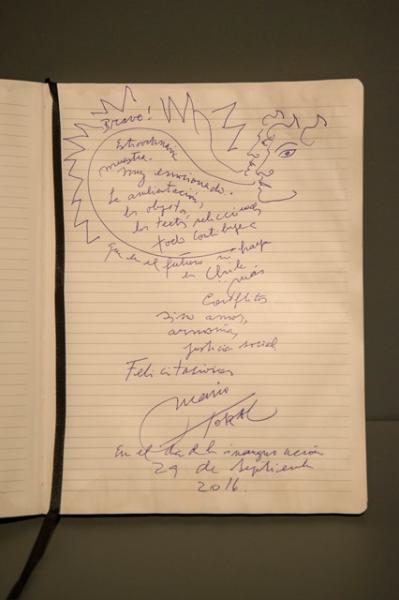 Bravo!
Extraordinaria
muestra.
muy emocionado.
La ambientación,
los objetos,
los textos seleccionados
todo contribuye
que en el futuro no haya
en Chile más
Conflictos
sino amor,
armonía,
justicia social
Felicitaciones
Mario
Toral
En el día de la inauguración
29 de Septiembre
2016.